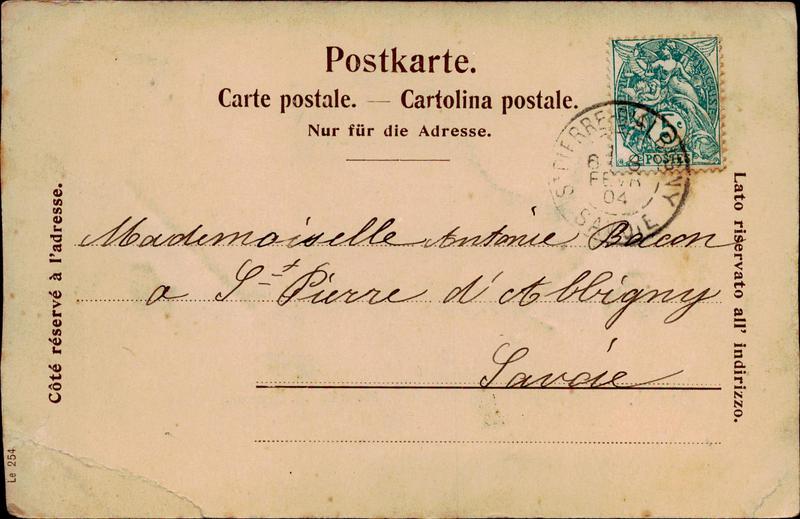 Postkarte.
Carte postale. — Cartolina postale.
Nur für die Adresse.
5 c.
POSTES
ST PIERRE D'ALBIGNY
6
FEVR
04
SAVOIE
Côté réservé à l'adresse.
Lato riservato all' indirizzo.
Mademoiselle Antonie Bacon
a St Pierre d'Albigny
Savoie
Le 254